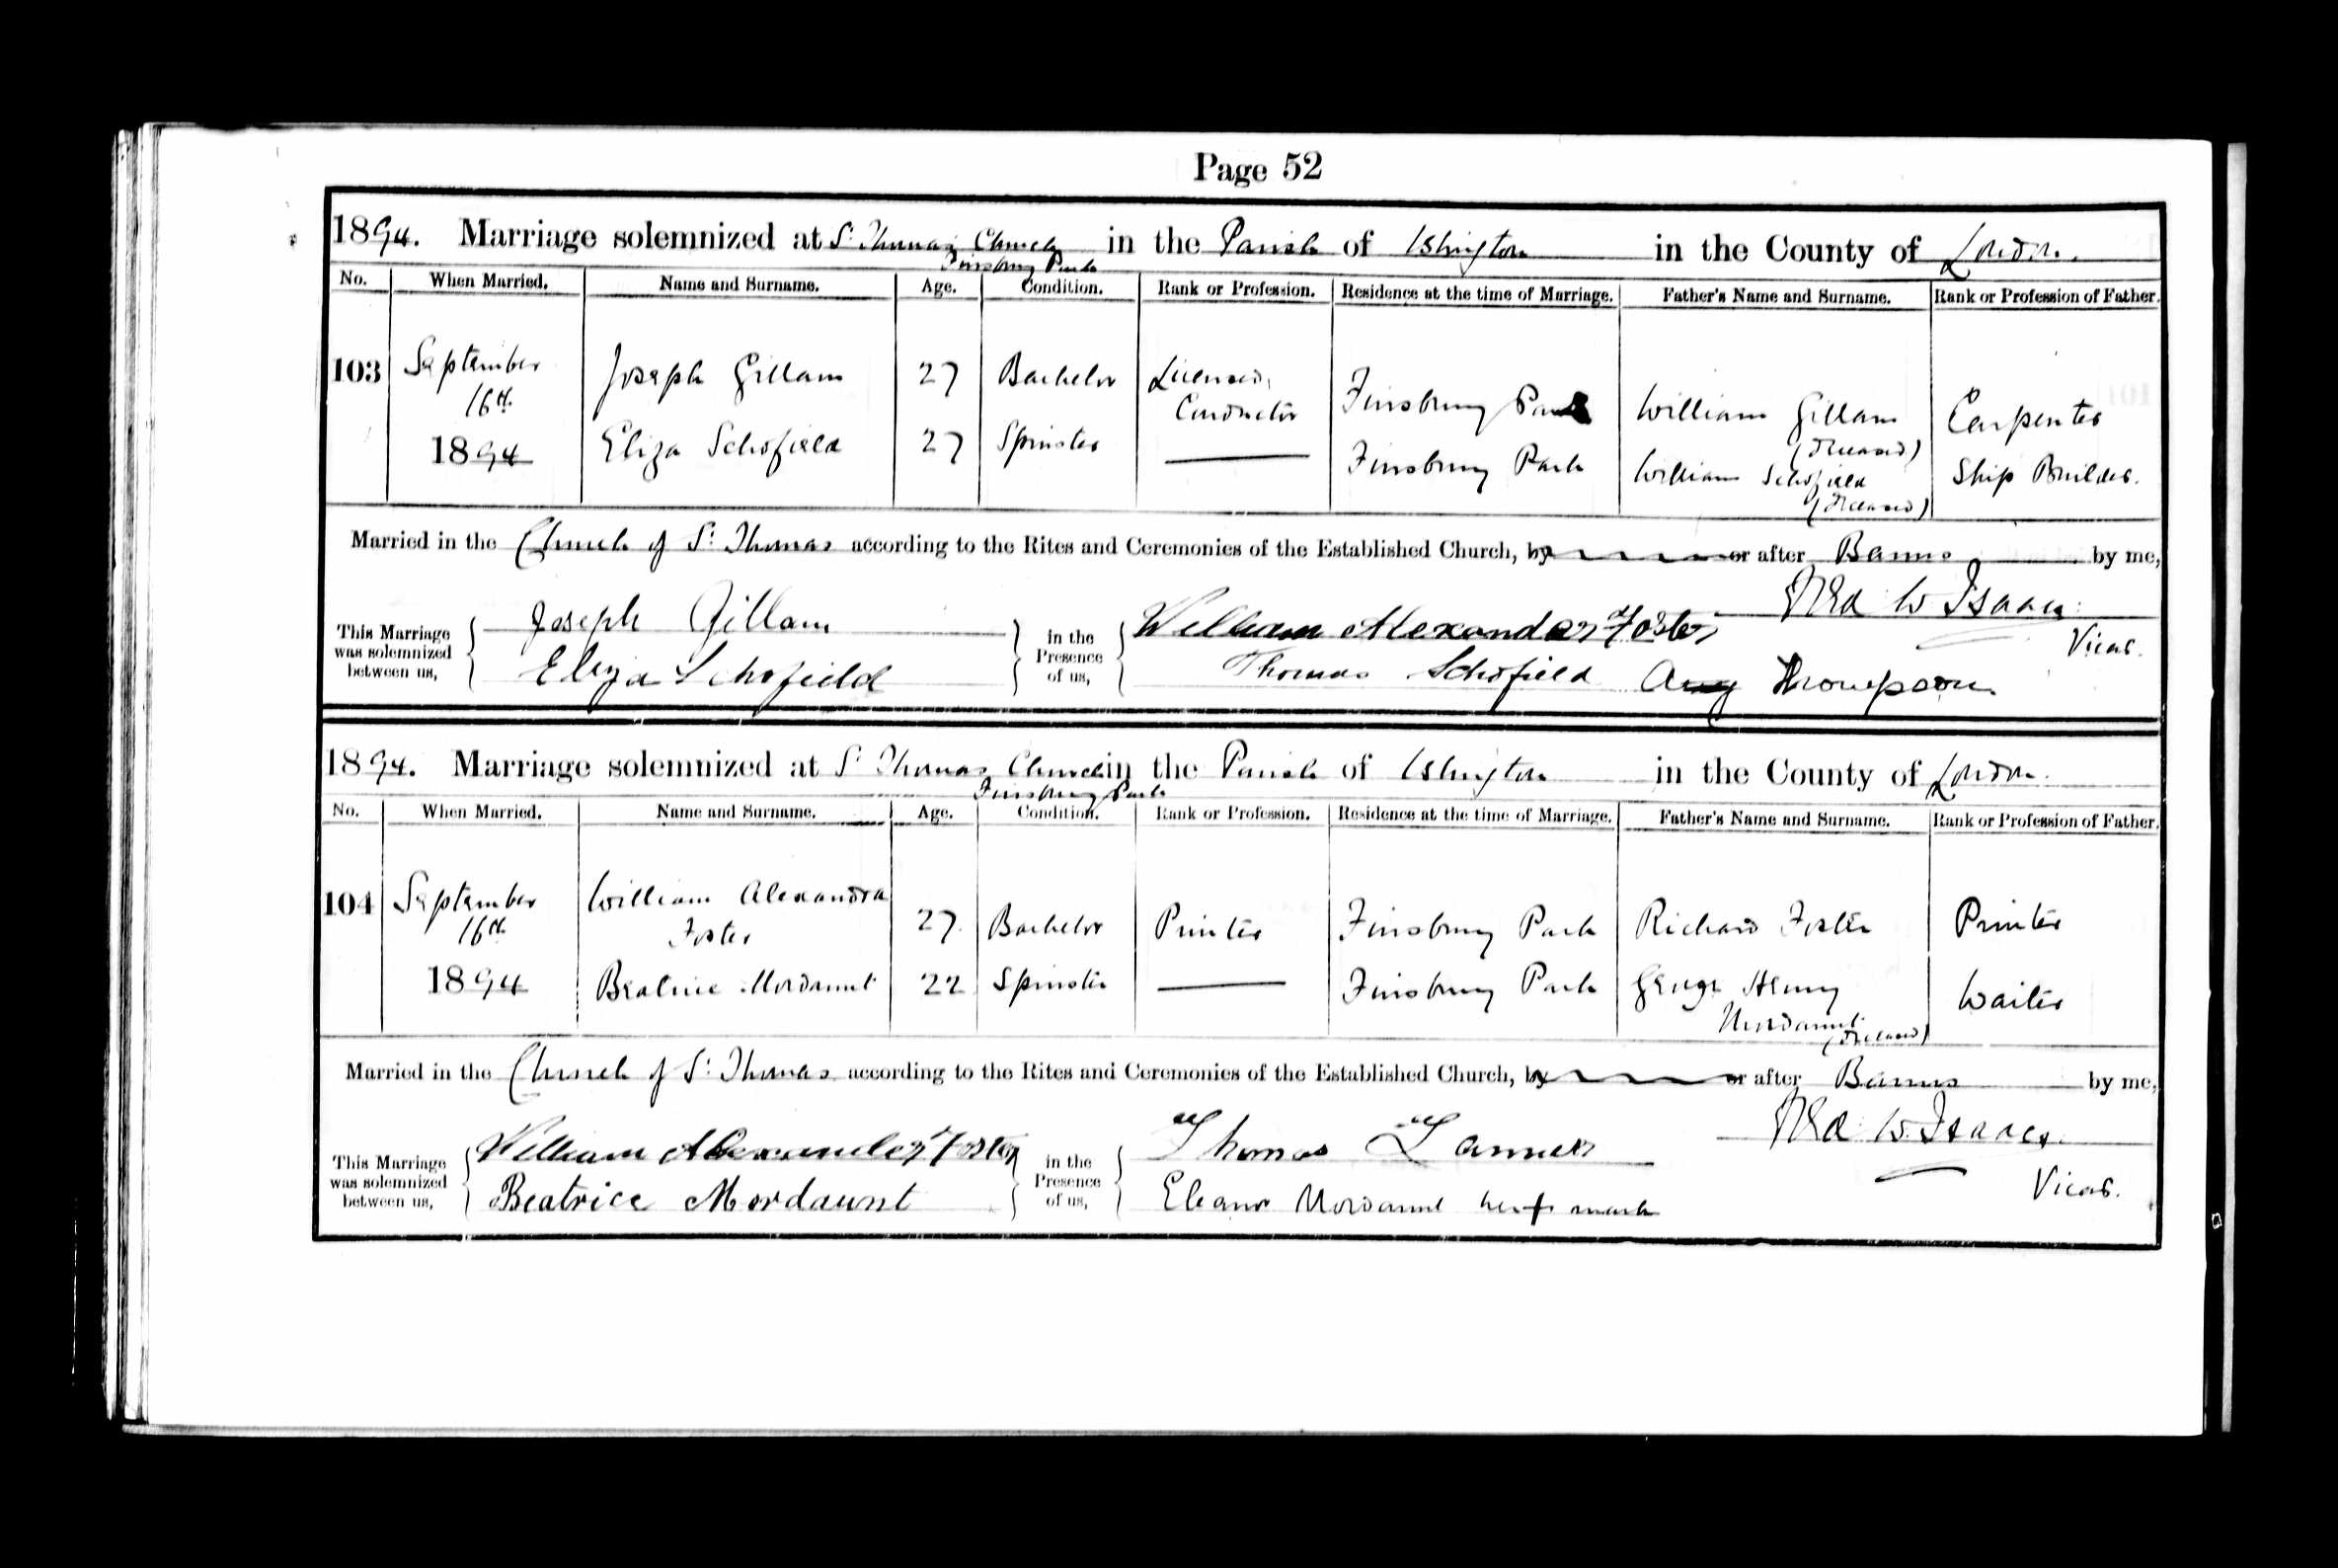 Page 52
1894. Marriage solemnized at St. Thomas Church in the Parish of Islington in the County of London.
Finsbury Park
No. When Married. Name and Surname. Age. Condition. Rank or Profession. Residence at the time of Marriage. Father's Name and Surname. Rank or Profession of Father.
103 September 16th 1894
Joseph Gillam 27 Bachelor Licensed Conductor Finsbury Park William Gillam (Deceased) Carpenter
Eliza Schofield 27 Spinster Finsbury Park William Schofield (Deceased) Ship Builder.
Married in the Church of St. Thomas according to the Rites and Ceremonies of the Established Church, by or after Banns by me,
W Isaacs
Vicar.
This Marriage was solemnized between us,
Joseph Gillam
Eliza Schofield
in the Presence of us,
William Alexander Foster
Thomas Schofield Amy Thompson
1894. Marriage solemnized at St. Thomas Church in the Parish of Islington in the County of London.
Finsbury Park
No. When Married. Name and Surname. Age. Condition. Rank or Profession. Residence at the time of Marriage. Father's Name and Surname. Rank or Profession of Father.
104 September 16th 1894
William Alexandra Foster 27. Bachelor Printer Finsbury Park Richard Foster Printer
Beatrice Mordaunt 22 Spinster Finsbury Park George Henry Mordaunt (Deceased) Waiter
Married in the Church of St. Thomas according to the Rites and Ceremonies of the Established Church, by or after Banns by me,
W. Isaacs.
Vicar.
This Marriage was solemnized between us,
William Alexander Foster
Beatrice Mordaunt
in the Presence of us,
Thomas
Eleanor Mordaunt her + mark